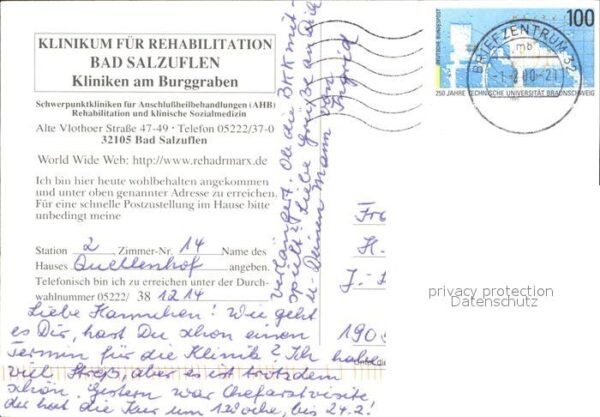 KLINIKUM FÜR REHABILITATION
BAD SALZUFLEN
Kliniken am Burggraben
Schwerpunktkliniken für Anschlußheilbehandlungen (AHB)
Rehabilitation und klinische Sozialmedizin
Alte Vlothoer Straße 47-49 · Telefon 05222/37-0
32105 Bad Salzuflen
World Wide Web: http://www.rehadrmarx.de
Ich bin hier heute wohlbehalten angekommen
und unter oben genannter Adresse zu erreichen.
Für eine schnelle Postzustellung im Hause bitte
unbedingt meine
Station 2 Zimmer-Nr. 14 Name des
Hauses Quellenhof angeben.
Telefonisch bin ich zu erreichen unter der Durch-
wahlnummer 05222/ 38 1214
Liebe Hannchen! Wie geht
es Dir, hast Du schon einen
Termin für die Klinik? Ich habe
viel Streß, aber es ist trotzdem
schön. Gestern war Chefarztvisite,
der hat die Kur um 1 Woche, bis 24.2.
verlängert. Ob die BKK mit-
spielt? Liebe Grüße an Dich
u. Deinen Mann von
Ingrid
DEUTSCHE BUNDESPOST
100
250 JAHRE TECHNISCHE UNIVERSITÄT BRAUNSCHWEIG
BRIEFZENTRUM 32
mb
-1.-2.00-21
Fr
H.
J.-
190
privacy protection
Datenschutz